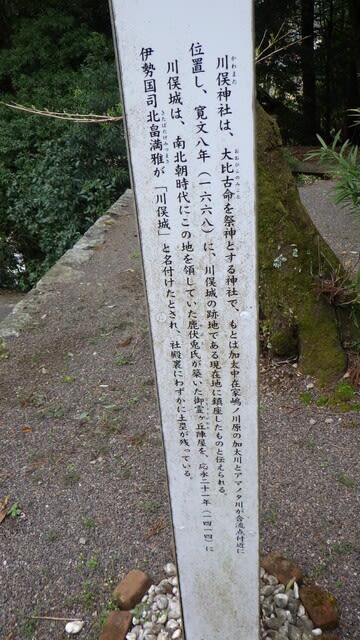 川俣神社は、大比古命を祭神とする神社で、もとは加太中在家嶋ノ川原の加太川とアマノタ川が合流点付近に
位置し、寛文八年(一六六八)に、川俣城の跡地である現在地に鎮座したものと伝えられる。
川俣城は、南北朝時代にこの地を領していた鹿伏兎氏が築いた御霊ヶ丘陣屋を、応永二十一年(一四一四)に
伊勢国司北畠満雅が「川俣城」と名付けたとされ、社殿裏にわずかに土塁が残っている。